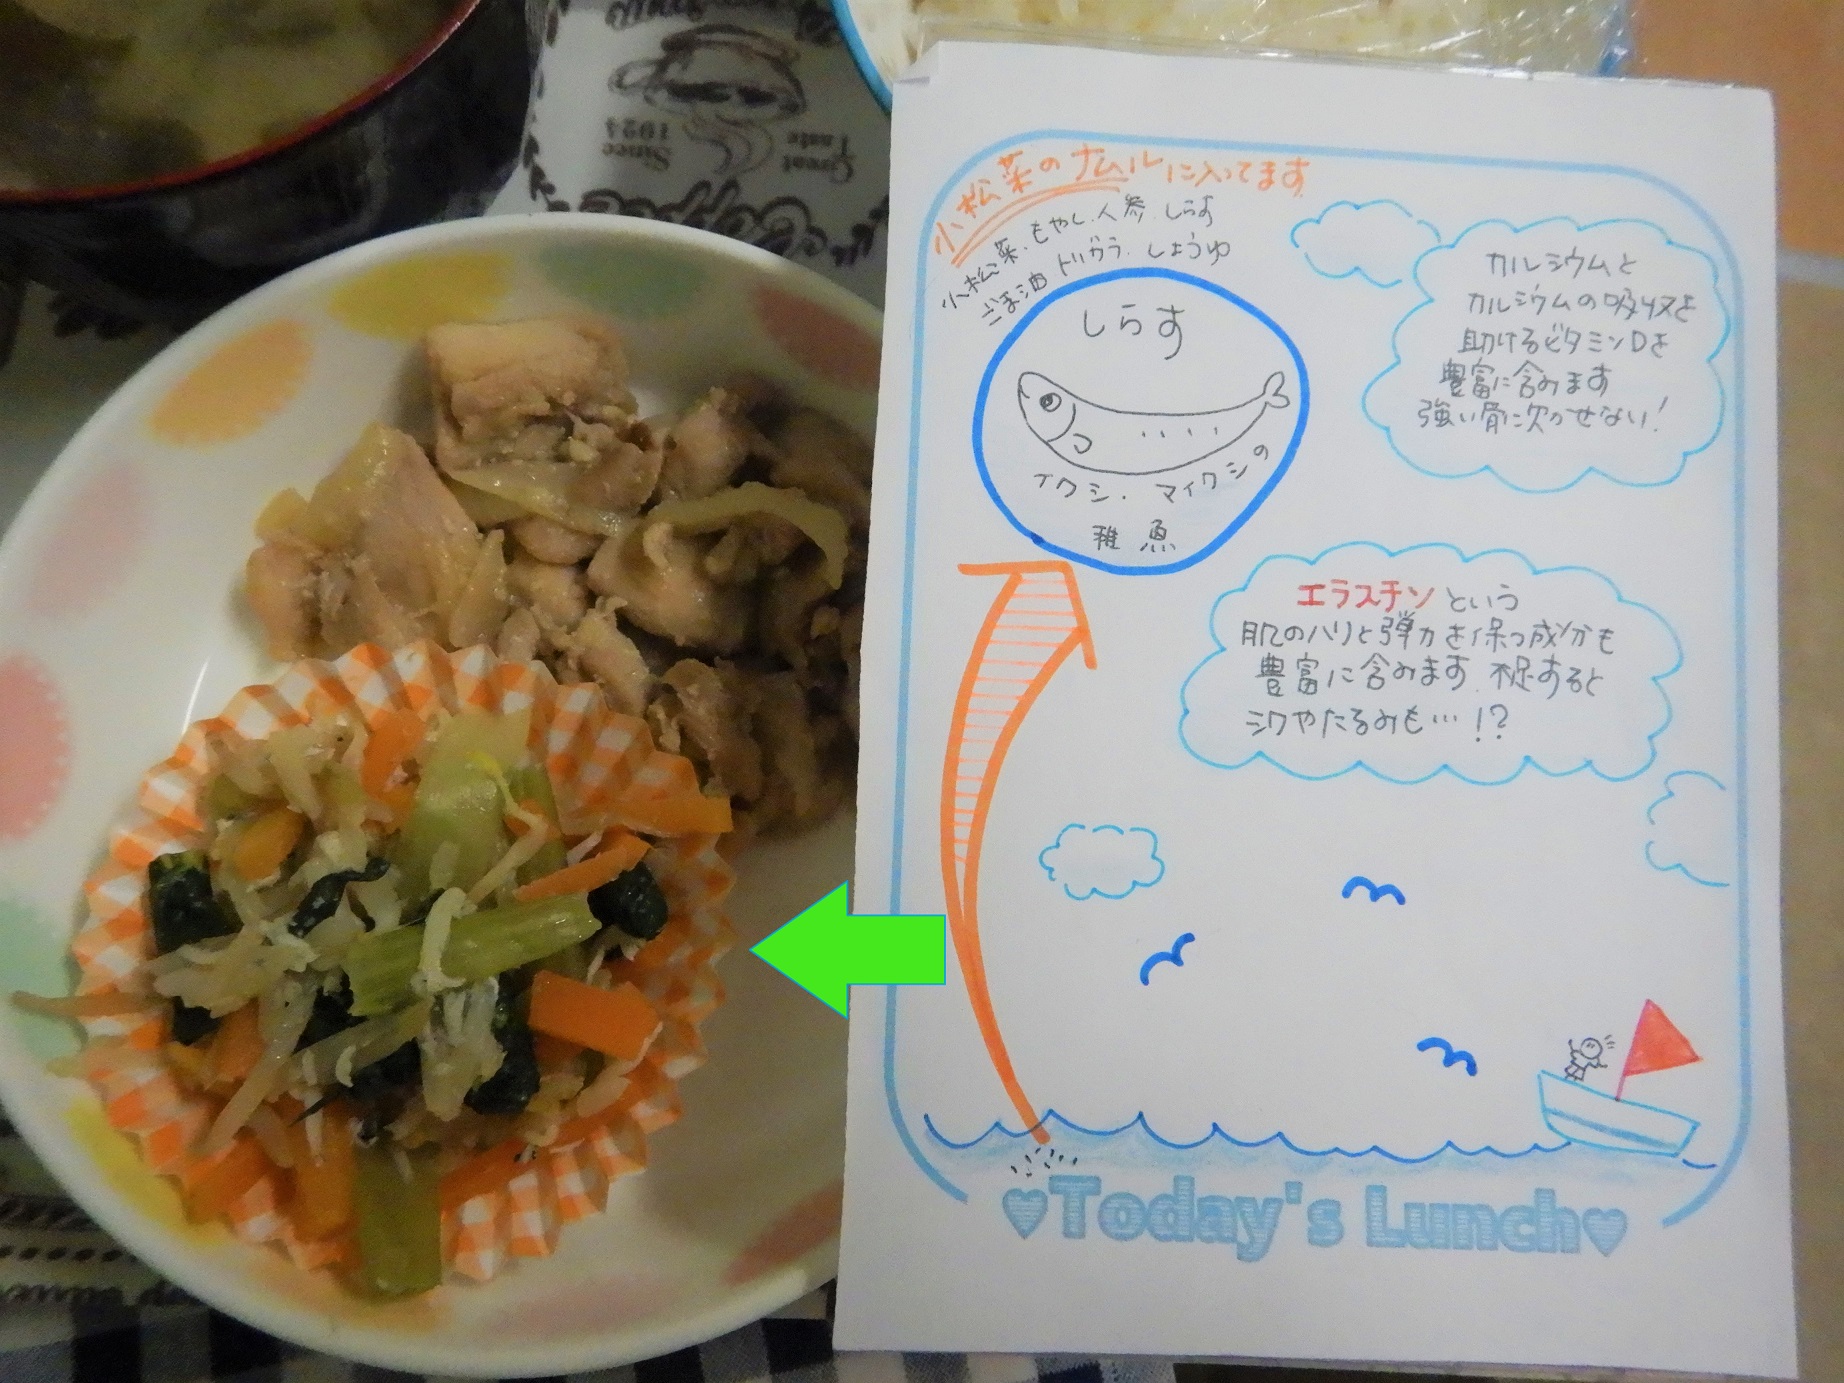 Since 1924
Great Taste
Coffee
小松菜のナムルに入ってます
小松菜.もやし.人参.しらす
ごま油 トリガラ.しょうゆ
しらす
イワシ.マイワシの
稚魚
カルシウムと
カルシウムの吸収を
助けるビタミンDを
豊富に含みます
強い骨に欠かせない!
エラスチンという
肌のハリと弾力を保つ成分も
豊富に含みます.不足すると
シワやたるみも…!?
♥Today's Lunch♥